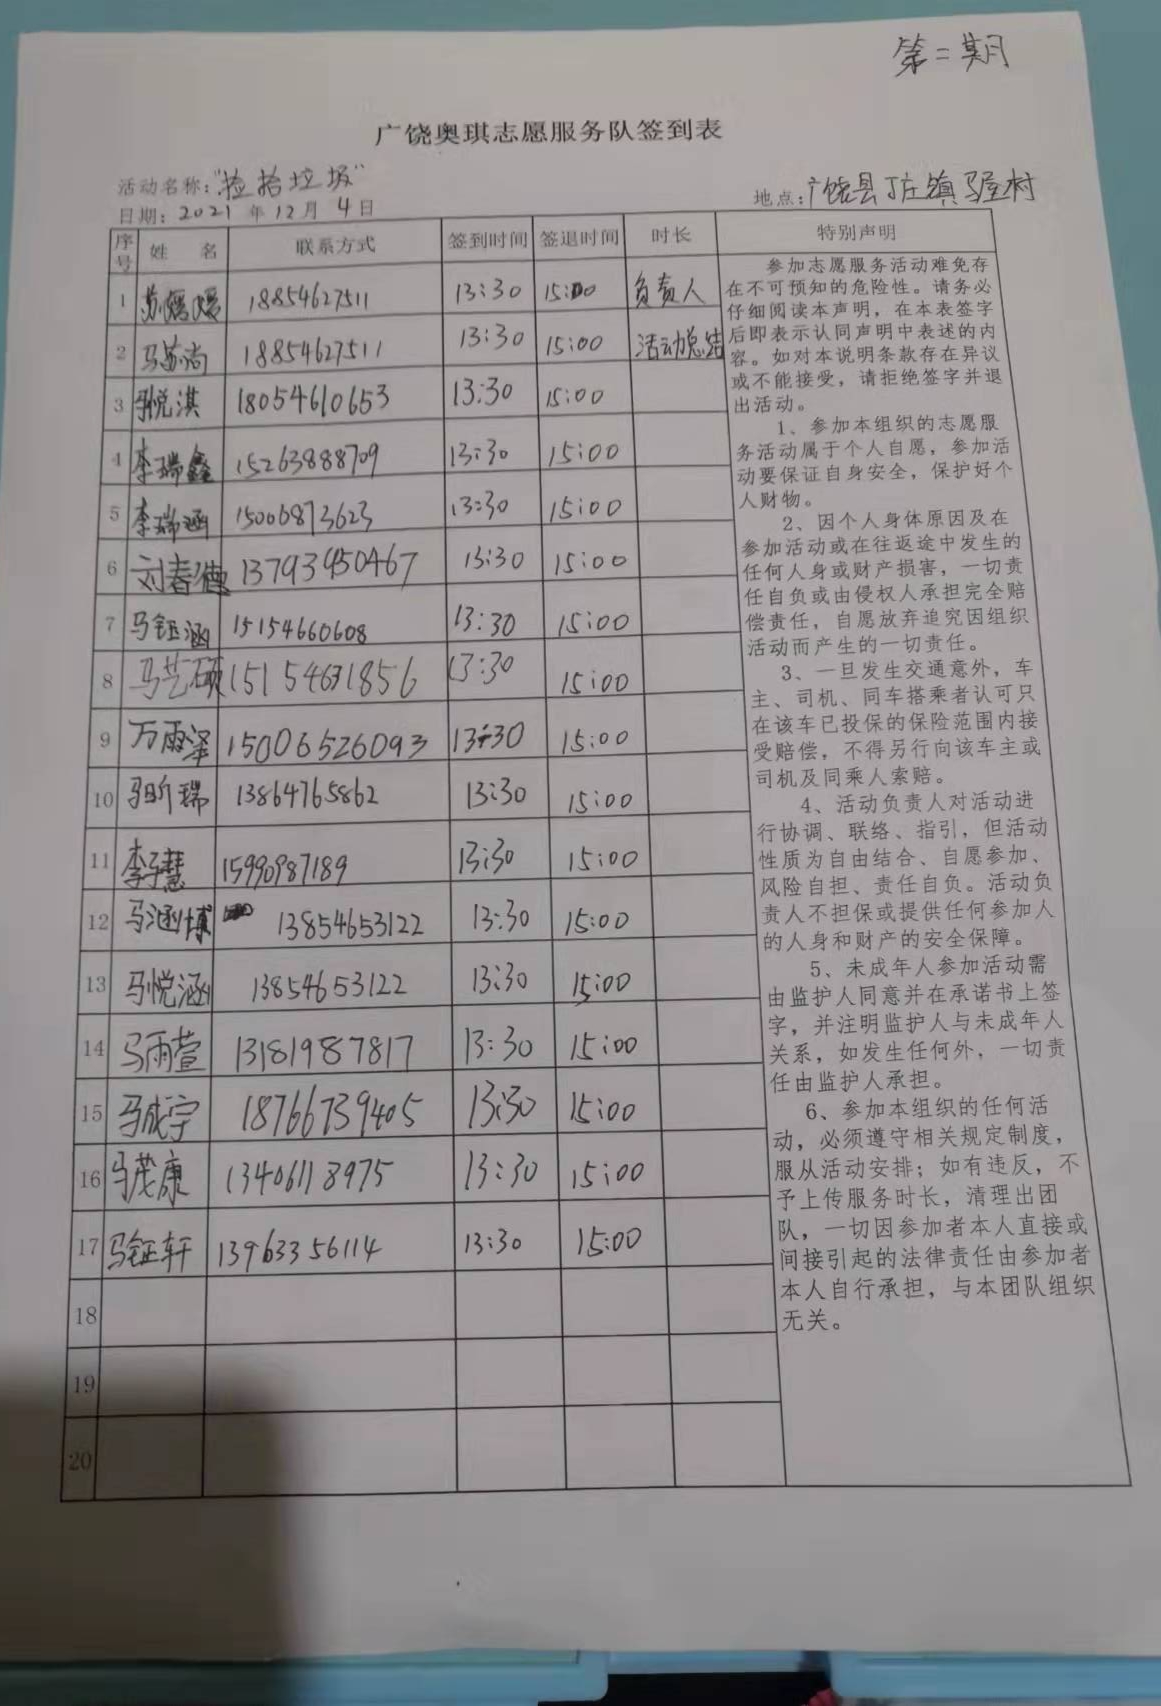 第二期
广饶奥琪志愿服务队签到表
活动名称："捡拾垃圾"
日期：2021年12月4日
地点：广饶县丁庄镇马屋村
序号 姓名 联系方式 签到时间 签退时间 时长 特别声明
1 苏媛媛 18854627511 13:30 15:00 负责人
2 马苏尚 18854627511 13:30 15:00 活动总结
3 悦淇 18054610653 13:30 15:00
4 李瑞鑫 15263888709 13:30 15:00
5 李瑞涵 15006873623 13:30 15:00
6 刘春德 13793950467 13:30 15:00
7 马钰涵 15154660608 13:30 15:00
8 马艺硕 13:30 15:00
9 万雨泽 15006526093 13:30 15:00
10 马昕瑞 13864765862 13:30 15:00
11 李子慧 15990987189 13:30 15:00
12 马涵博 13854653122 13:30 15:00
13 马悦涵 13854653122 13:30 15:00
14 马雨萱 13181987817 13:30 15:00
15 马成宇 18766739405 13:30 15:00
16 马茂康 13406118975 13:30 15:00
17 马钲轩 13963356114 13:30 15:00
18
19
20
参加志愿服务活动难免存
在不可预知的危险性。请务必
仔细阅读本声明，在本表签字
后即表示认同声明中表述的内
容。如对本说明条款存在异议
或不能接受，请拒绝签字并退
出活动。
1、参加本组织的志愿服
务活动属于个人自愿，参加活
动要保证自身安全，保护好个
人财物。
2、因个人身体原因及在
参加活动或在往返途中发生的
任何人身或财产损害，一切责
任自负或由侵权人承担完全赔
偿责任，自愿放弃追究因组织
活动而产生的一切责任。
3、一旦发生交通意外，车
主、司机、同车搭乘者认可只
在该车已投保的保险范围内接
受赔偿，不得另行向该车主或
司机及同乘人索赔。
4、活动负责人对活动进
行协调、联络、指引，但活动
性质为自由结合、自愿参加、
风险自担、责任自负。活动负
责人不担保或提供任何参加人
的人身和财产的安全保障。
5、未成年人参加活动需
由监护人同意并在承诺书上签
字，并注明监护人与未成年人
关系，如发生任何外，一切责
任由监护人承担。
6、参加本组织的任何活
动，必须遵守相关规定制度，
服从活动安排；如有违反，不
予上传服务时长，清理出团
队，一切因参加者本人直接或
间接引起的法律责任由参加者
本人自行承担，与本团队组织
无关。